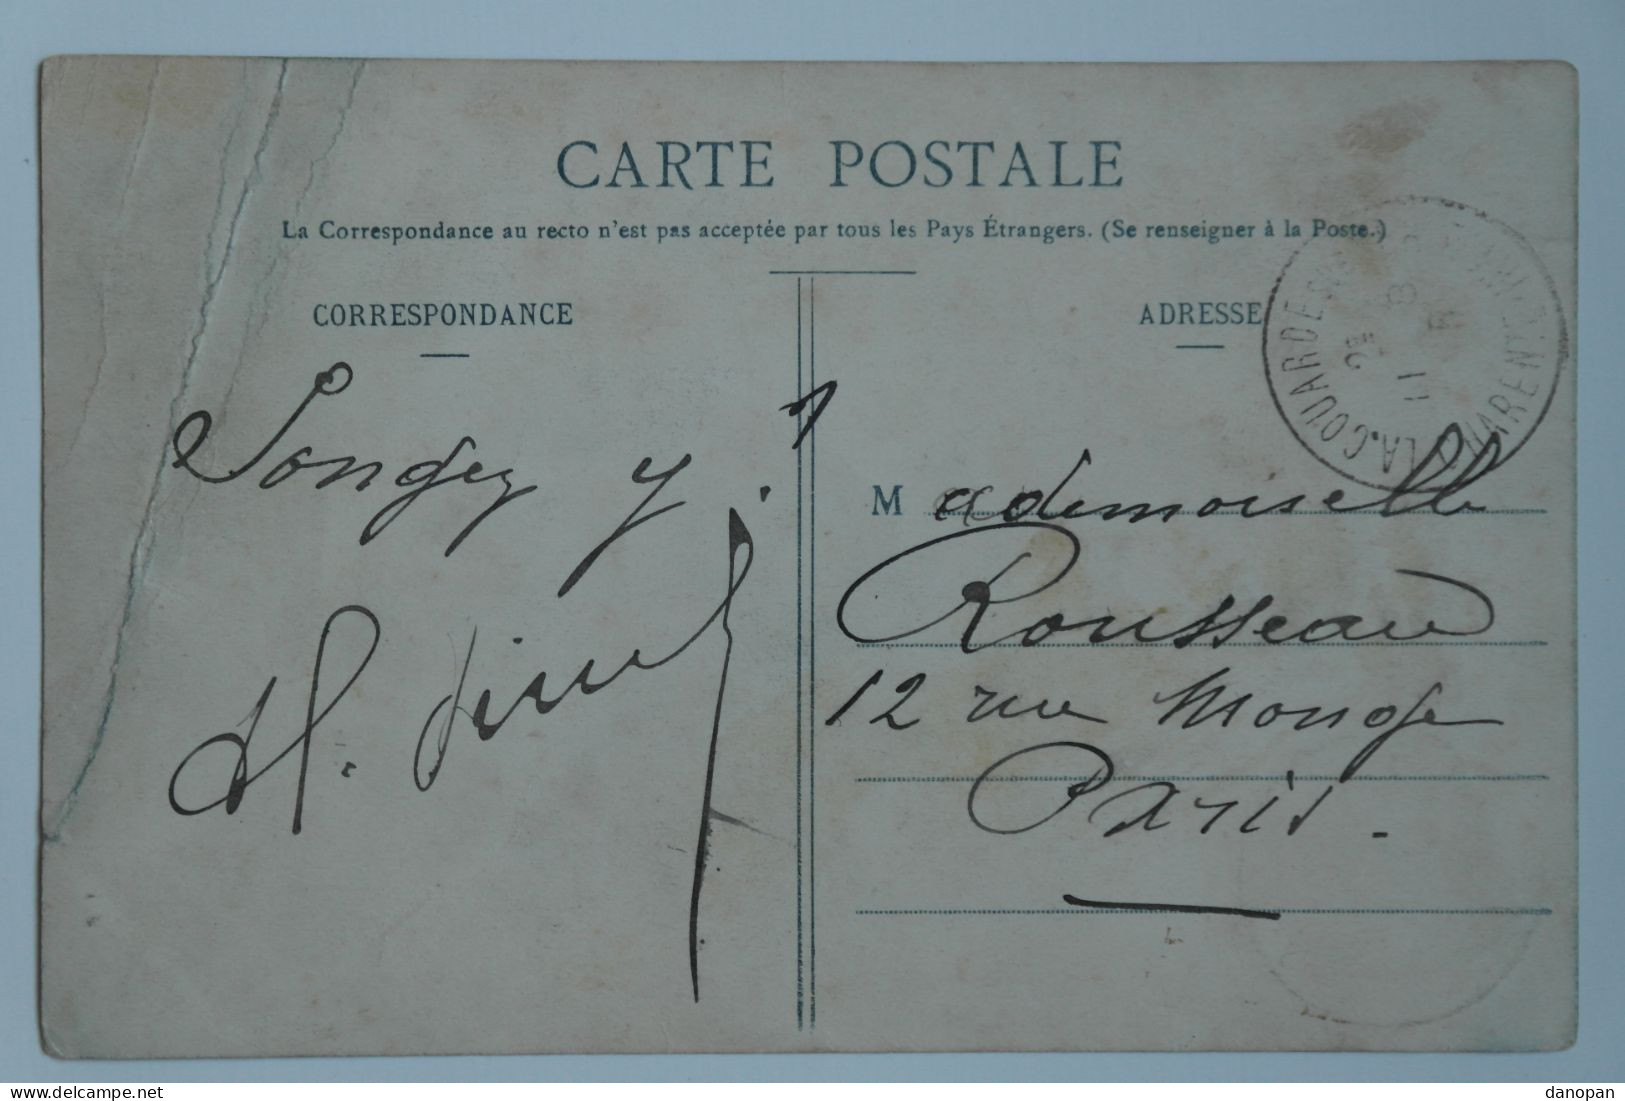 CARTE POSTALE
La Correspondance au recto n'est pas acceptée par tous les Pays Étrangers. (Se renseigner à la Poste.)
CORRESPONDANCE
Songez y !
H.
ADRESSE
Mademoiselle
Rousseau
12 rue Monge
Paris.
LA COUARDE
CHARENTE
danopan
www.delcampe.net